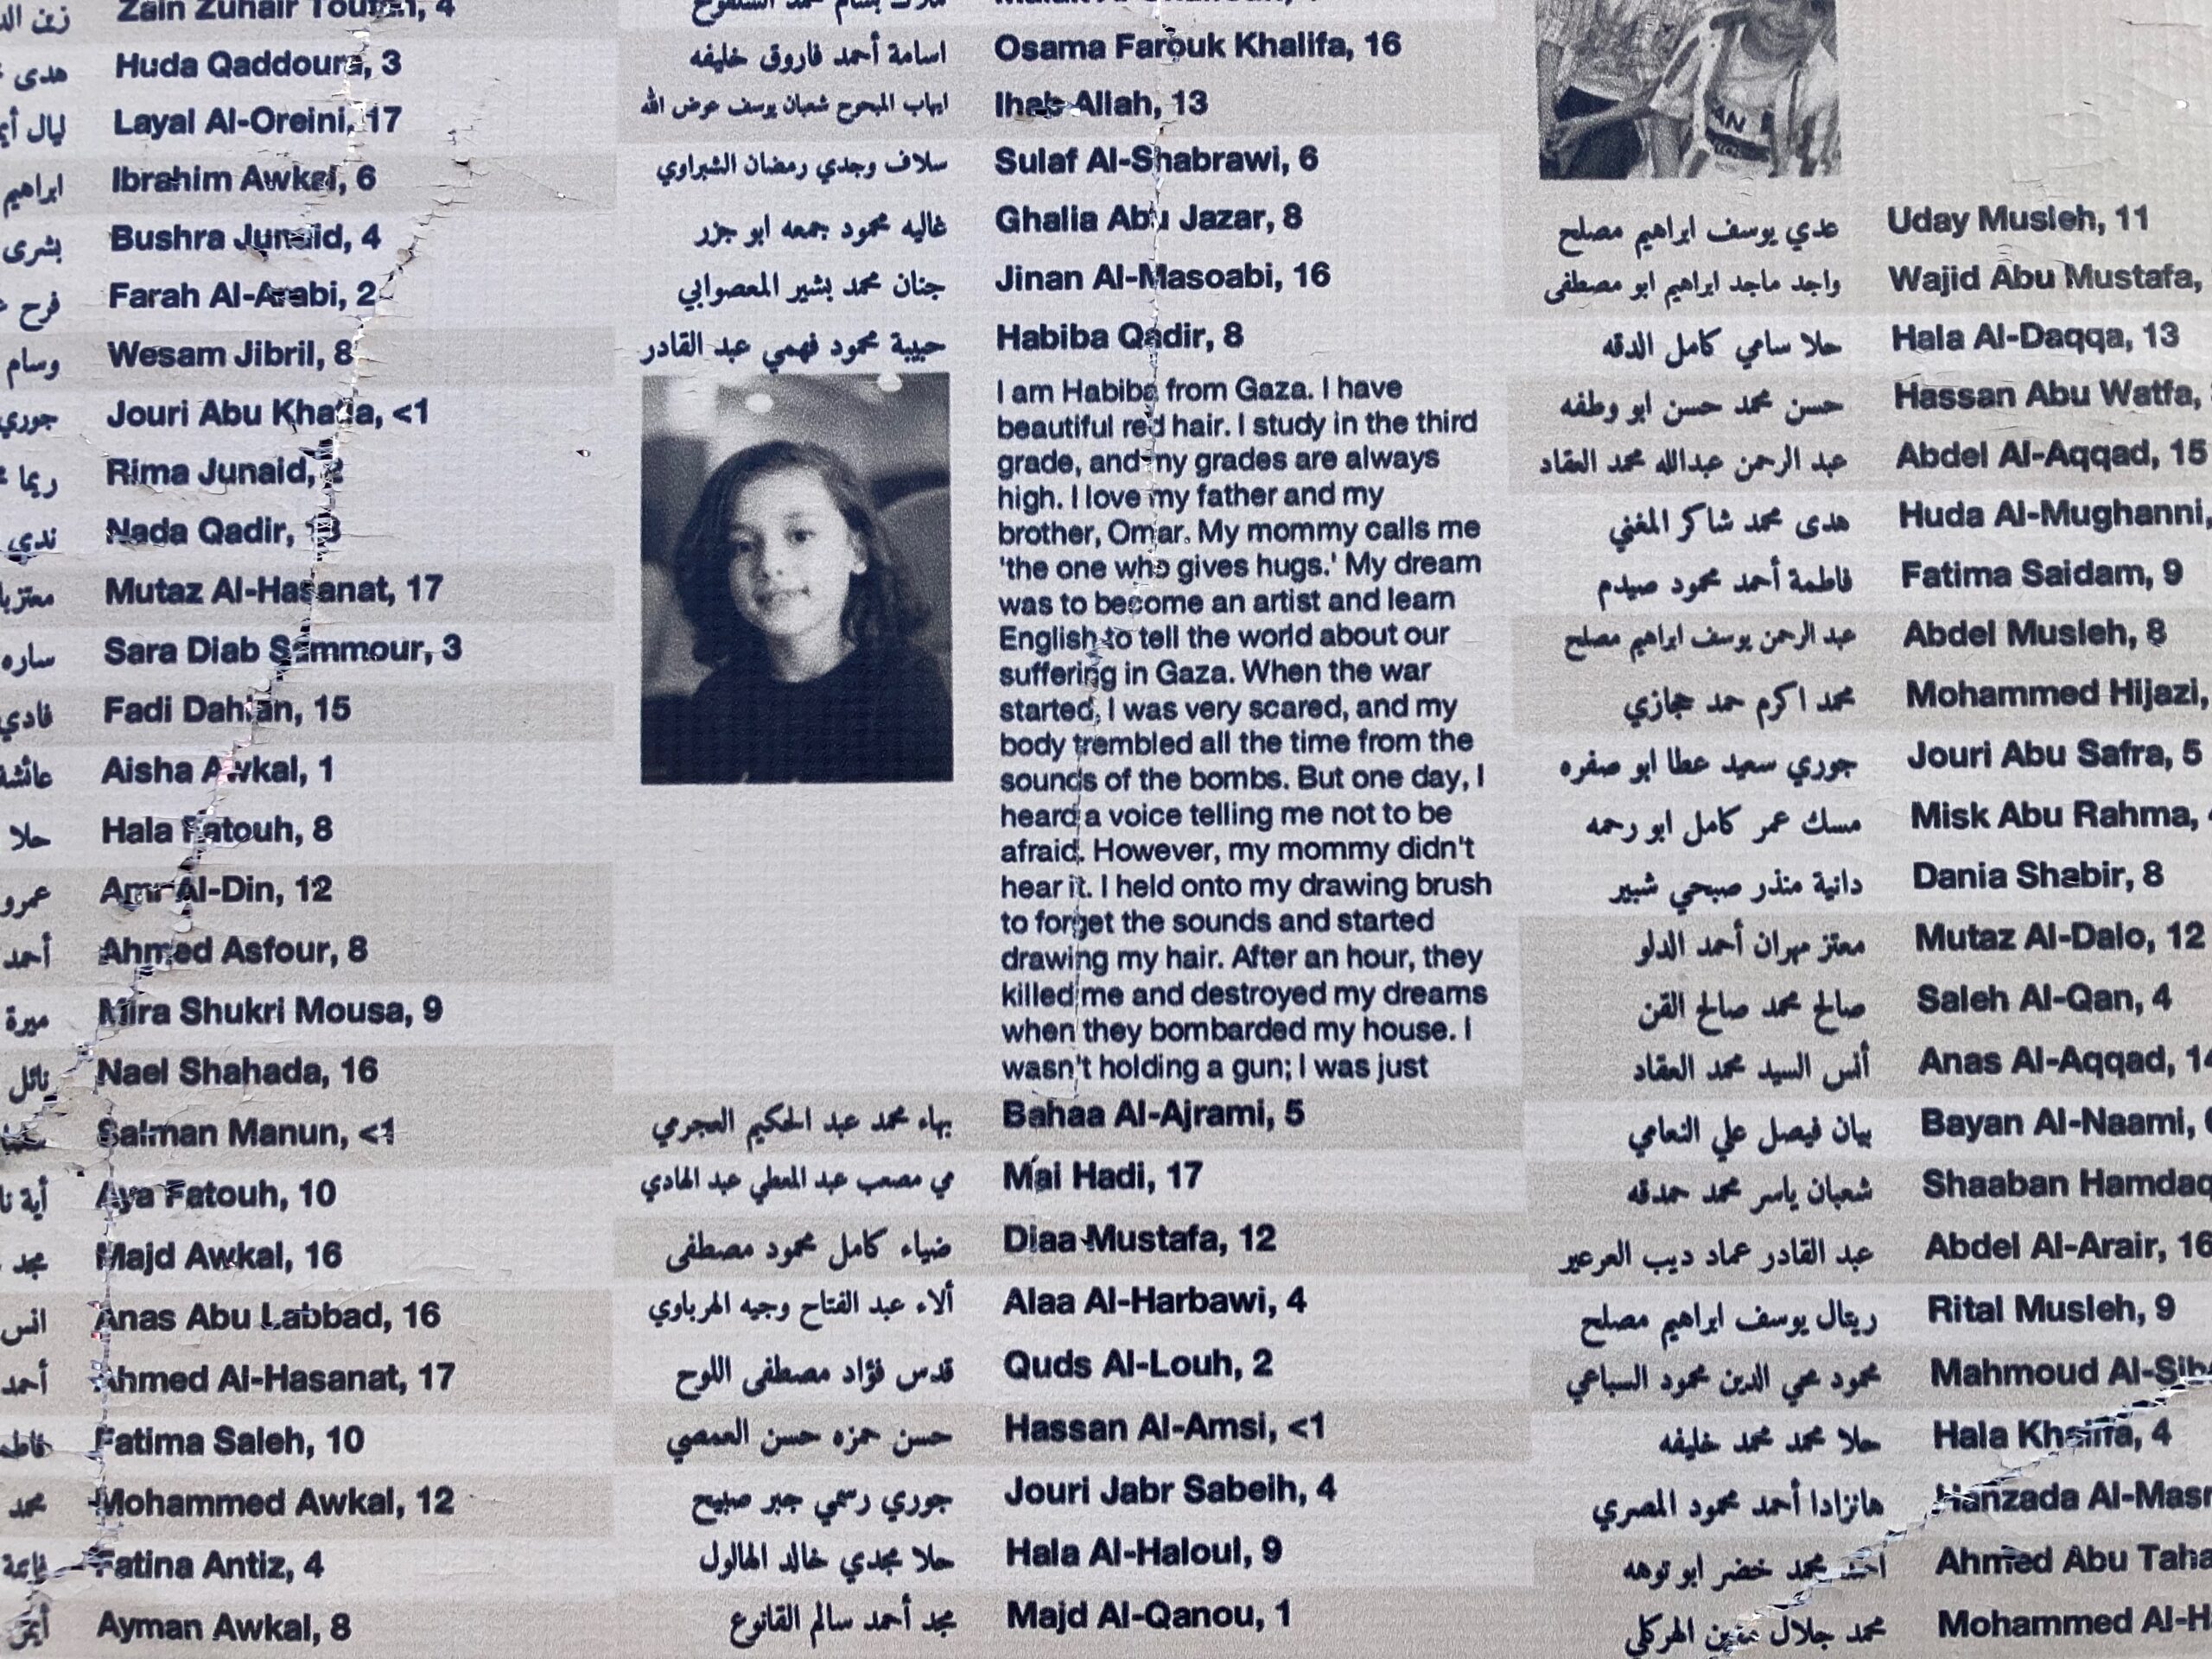 زين Zain Zuhair 4
هدى Huda Qaddoura, 3
ليال Layal Al-Oreini, 17
ابراهيم Ibrahim Awkal, 6
بشرى Bushra Junaid, 4
فرح Farah Al-Arabi, 2
وسام Wesam Jibril, 8
جوري Jouri Abu <1
ريما Rima Junaid,
ندى Nada Qadir,
Mutaz Al-Hasanat, 17
ساره Sara Diab Sammour, 3
فادي Fadi Dahlan, 15
عائشة Aisha Awkal, 1
حلا Hala Fatouh, 8
عمرو Amr Al-Din, 12
أحمد Ahmed Asfour, 8
ميرة Mira Shukri Mousa, 9
نائل Nael Shahada, 16
Salman Manun, <1
أية Aya Fatouh, 10
مجد Majd Awkal, 16
انس Anas Abu Labbad, 16
أحمد Ahmed Al-Hasanat, 17
Fatima Saleh, 10
محمد Mohammed Awkal, 12
Fatina Antiz, 4
Ayman Awkal, 8
اسامة أحمد فاروق خليفه Osama Farouk Khalifa, 16
ايهاب المبحوح شعبان يوسف عوض الله Ihab Allah, 13
سلاف وجدي رمضان الشبراوي Sulaf Al-Shabrawi, 6
غاليه محمود جمعه ابو جزر Ghalia Abu Jazar, 8
جنان محمد بشير المعصوابي Jinan Al-Masoabi, 16
حبيبة محمود فهمي عبد القادر Habiba Qadir, 8
I am Habiba from Gaza. I have
beautiful red hair. I study in the third
grade, and my grades are always
high. I love my father and my
brother, Omar. My mommy calls me
'the one who gives hugs.' My dream
was to become an artist and learn
English to tell the world about our
suffering in Gaza. When the war
started, I was very scared, and my
body trembled all the time from the
sounds of the bombs. But one day, I
heard a voice telling me not to be
afraid. However, my mommy didn't
hear it. I held onto my drawing brush
to forget the sounds and started
drawing my hair. After an hour, they
killed me and destroyed my dreams
when they bombarded my house. I
wasn't holding a gun; I was just
بهاء محمد عبد الحكيم العجرمي Bahaa Al-Ajrami, 5
مي مصعب عبد المعطي عبد الهادي Mai Hadi, 17
ضياء كامل محمود مصطفى Diaa Mustafa, 12
ألاء عبد الفتاح وجيه الهرباوي Alaa Al-Harbawi, 4
قدس فؤاد مصطفى اللوح Quds Al-Louh, 2
حسن حمزه حسن العمصي Hassan Al-Amsi, <1
جوري رسمي جبر صبيح Jouri Jabr Sabeih, 4
حلا مجدي خالد الهالول Hala Al-Haloul, 9
مجد أحمد سالم القانوع Majd Al-Qanou, 1
عدي يوسف ابراهيم مصلح Uday Musleh, 11
واجد ماجد ابراهيم ابو مصطفى Wajid Abu Mustafa,
حلا سامي كامل الدقه Hala Al-Daqqa, 13
حسن محمد حسن ابو وطفه Hassan Abu Watfa,
عبد الرحمن عبدالله محمد العقاد Abdel Al-Aqqad, 15
هدى محمد شاكر المغني Huda Al-Mughanni,
فاطمة أحمد محمود صيدم Fatima Saidam, 9
عبد الرحمن يوسف ابراهيم مصلح Abdel Musleh, 8
محمد اكرم حمد حجازي Mohammed Hijazi,
جوري سعيد عطا ابو صفره Jouri Abu Safra, 5
مسك عمر كامل ابو رحمه Misk Abu Rahma,
دانية منذر صبحي شبير Dania Shabir, 8
معتز مهران أحمد الدلو Mutaz Al-Dalo, 12
صالح محمد صالح القن Saleh Al-Qan, 4
أنس السيد محمد العقاد Anas Al-Aqqad, 14
بيان فيصل علي النعامي Bayan Al-Naami,
شعبان ياسر محمد حمدقه Shaaban Hamdaq
عبد القادر عماد ديب العرعير Abdel Al-Arair, 16
ريتال يوسف ابراهيم مصلح Rital Musleh, 9
محمود محي الدين محمود السباعي Mahmoud
حلا محمد محمد خليفه Hala Khalifa, 4
هانزادا أحمد محمود المصري Hanzada Al-Masr
احمد محمد خضر ابو توهه Ahmed Abu Taha
محمد جلال الهركلي Mohammed Al-H